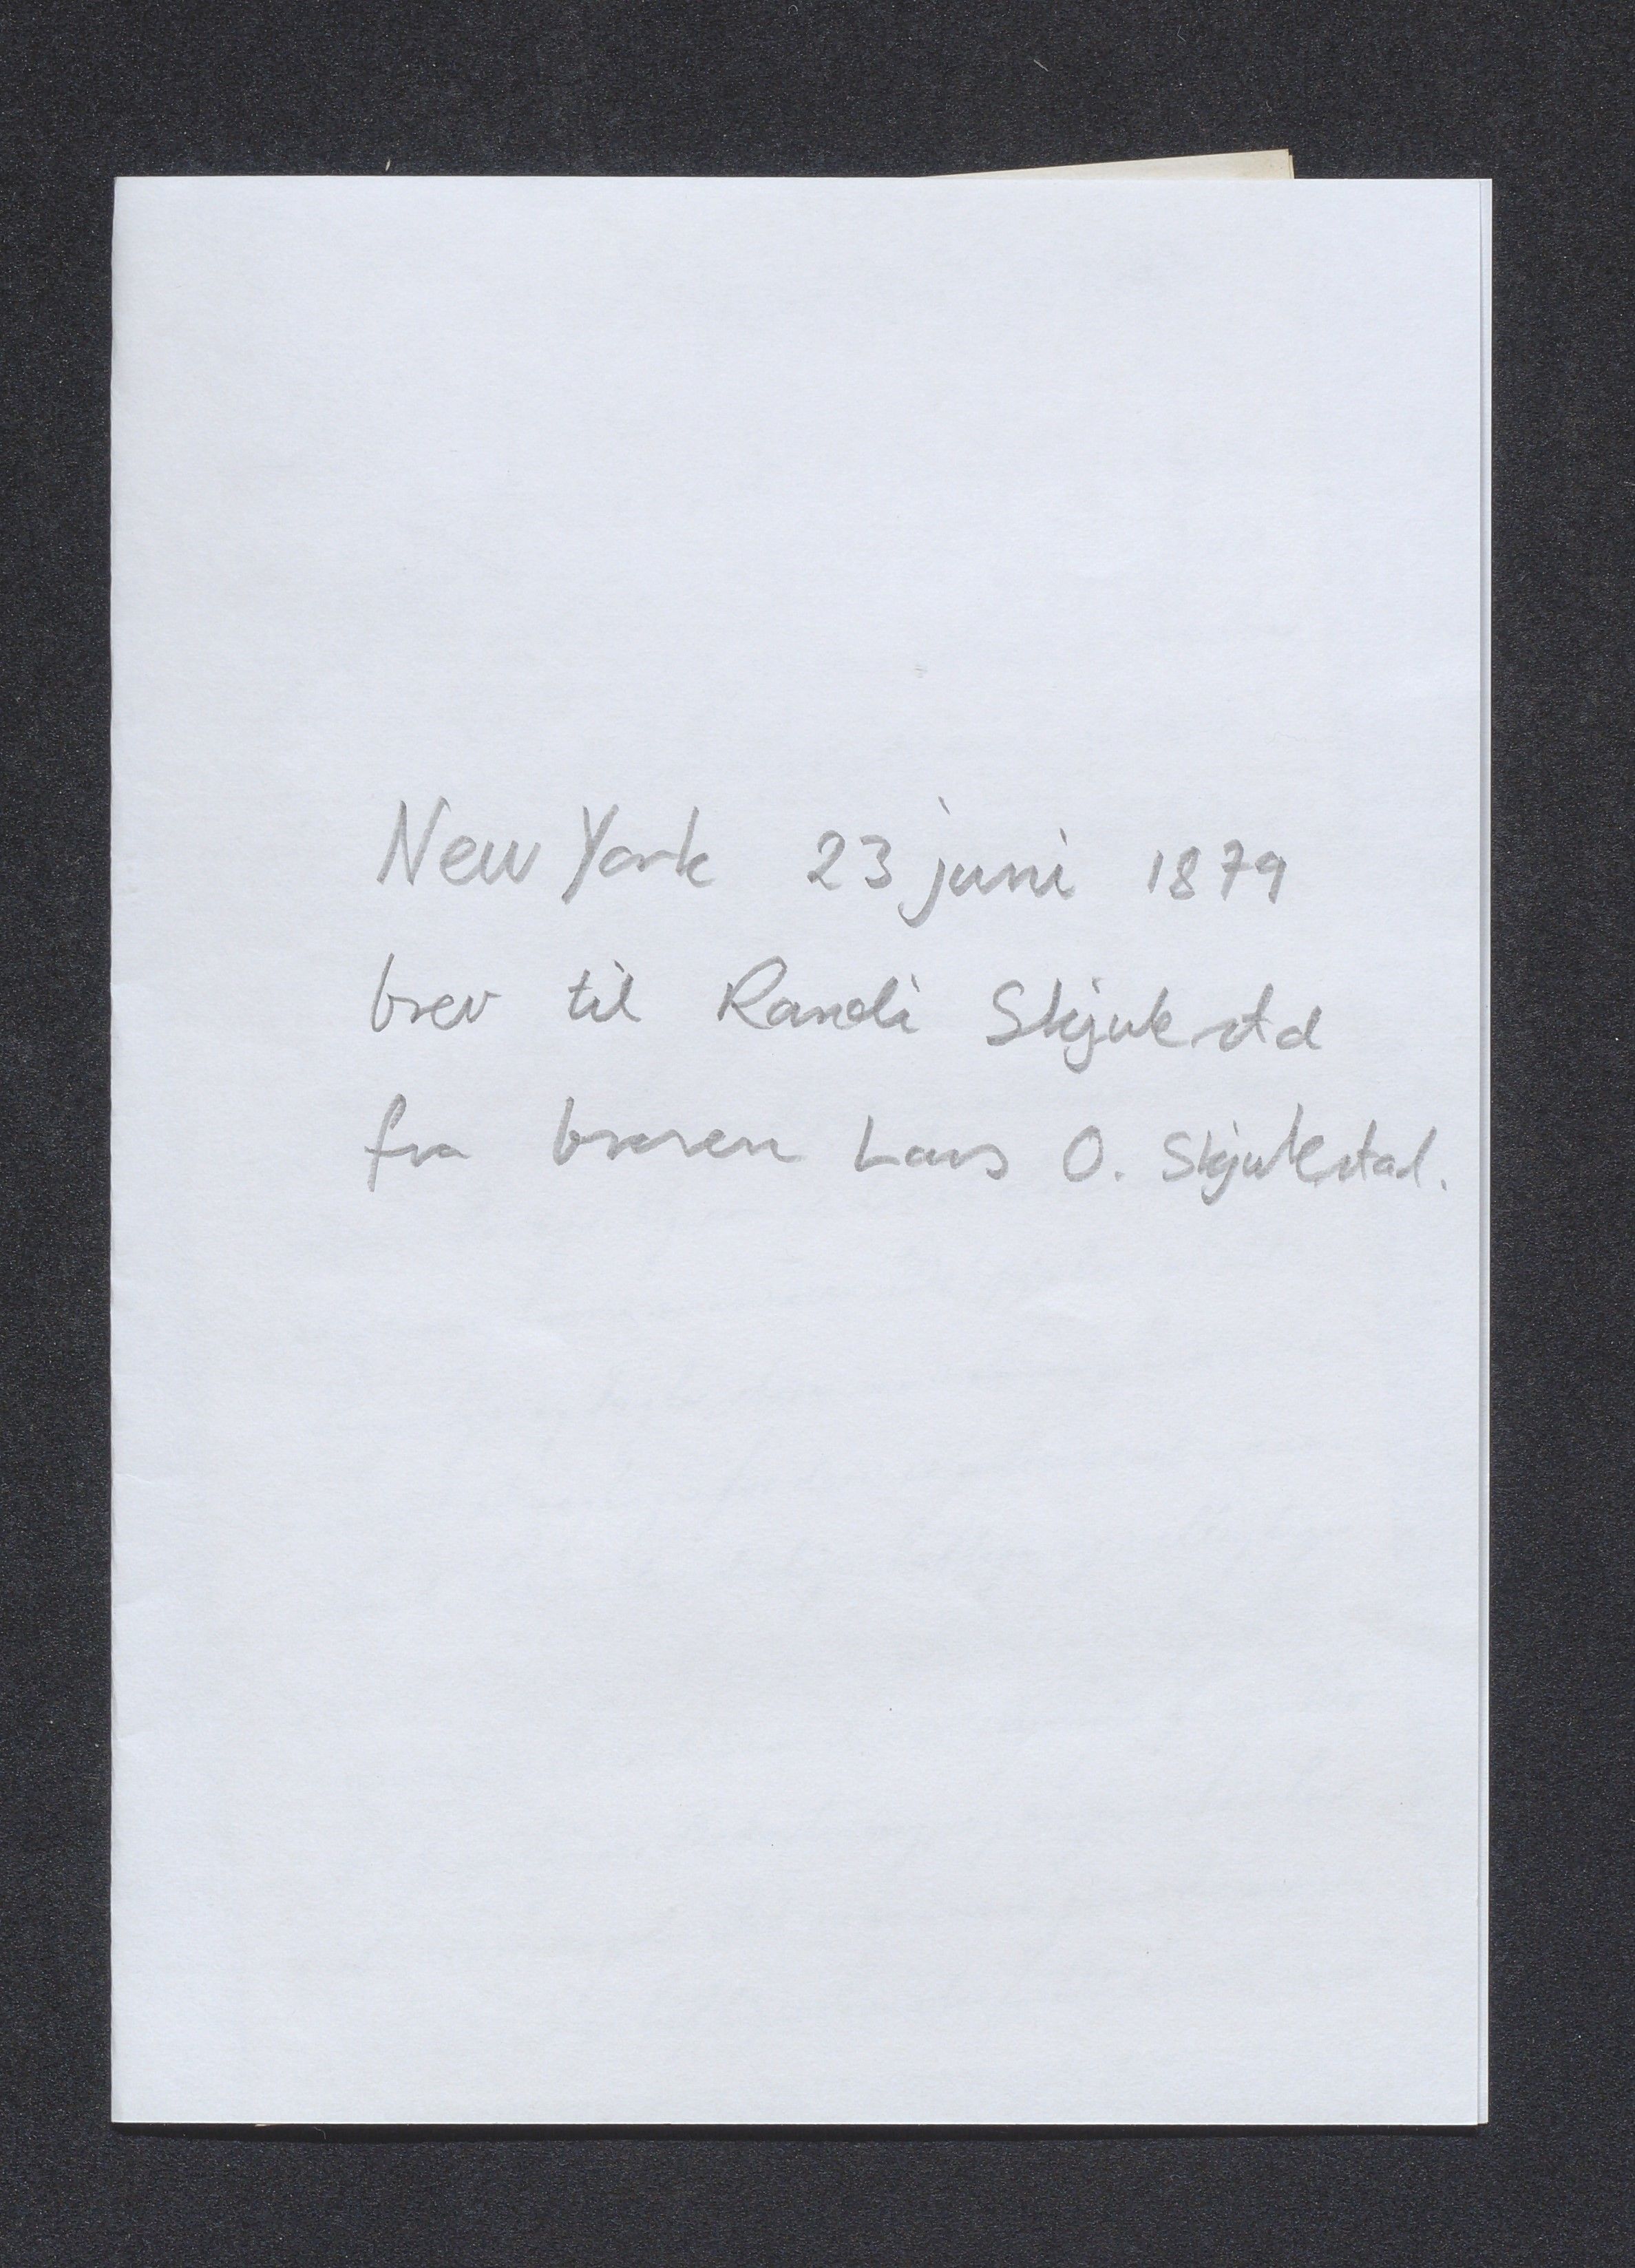 New York 23 juni 1879
brev til Randi Skjukstd
fra broren Lars O. Skjukstad.